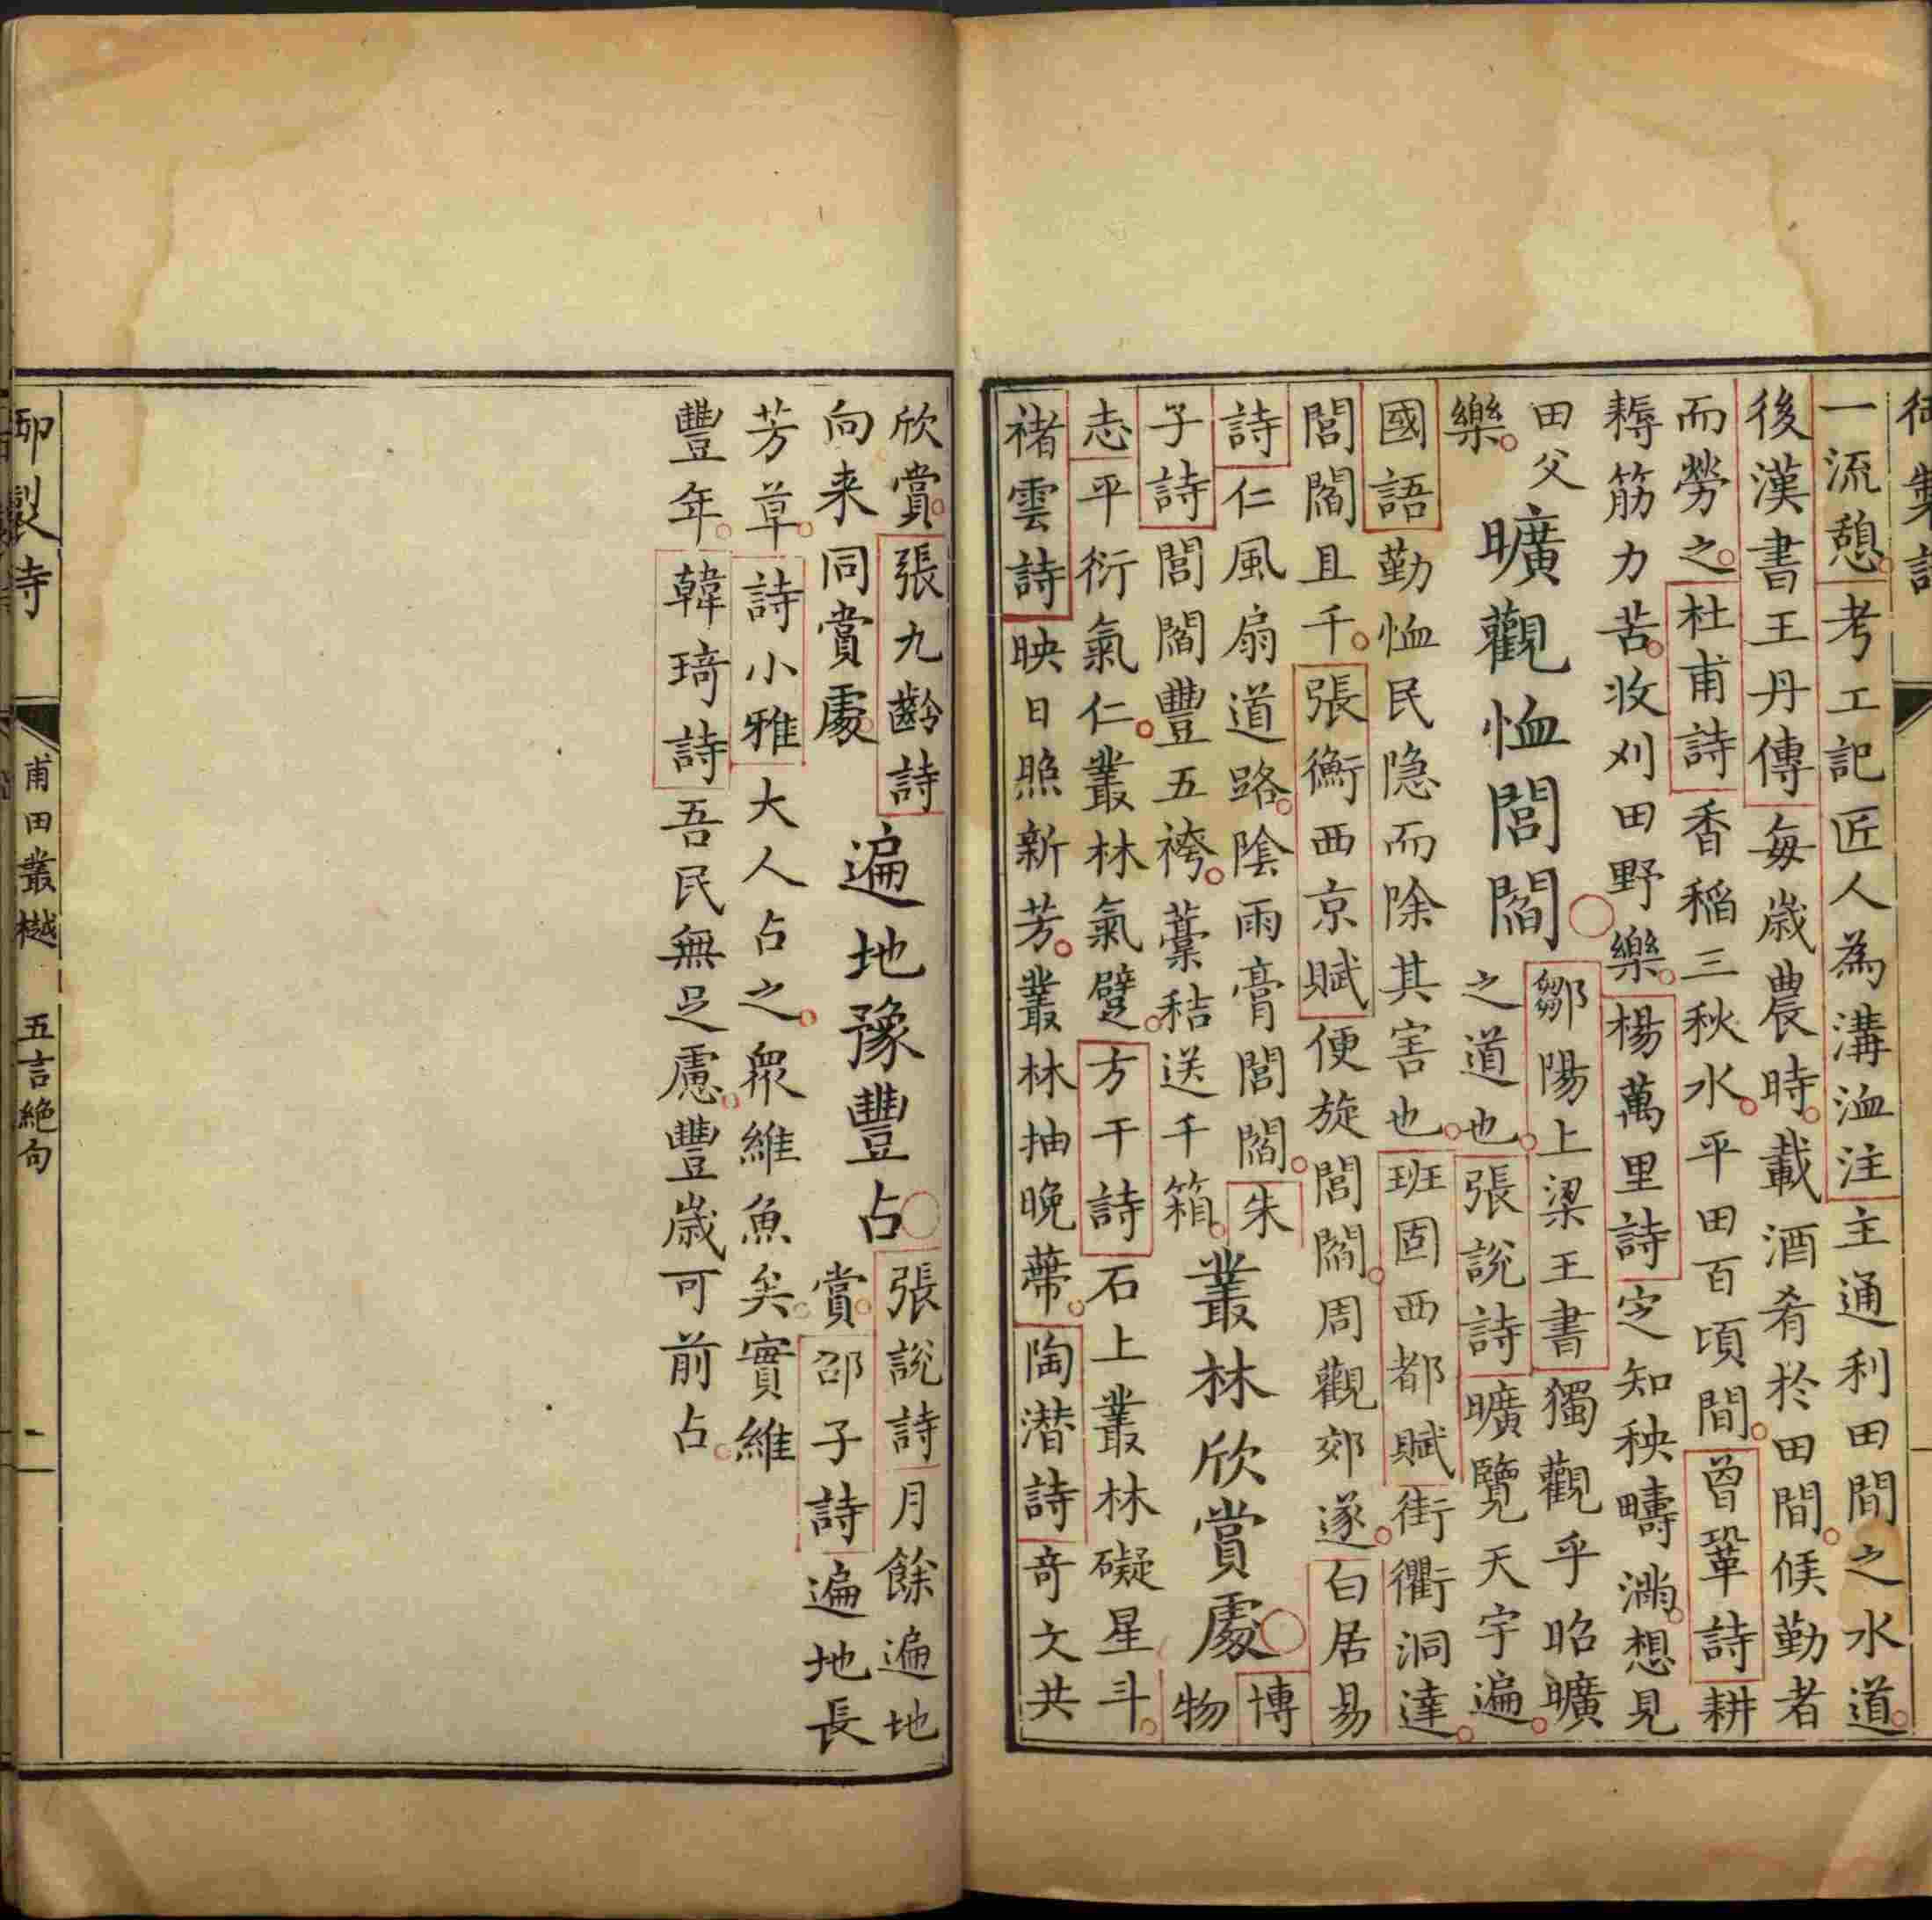 御製詩
一流憩考工記匠人為溝洫注主通利田間之水道
後漢書王丹傳每歲農時載酒肴於田間候勤者
而勞之杜甫詩香稻三秋水平田百頃間曾鞏詩耕
耨筋力苦收刈田野樂楊萬里詩定知秧疇滿想見
田父
樂
曠觀恤閭閻
鄒陽上梁王書獨觀乎昭曠
之道也張說詩曠覽天宇遍
國語勤恤民隐而除其害也班固西都賦街衢洞達
閭閻且千張衡西京賦便旋閭閻周觀郊遂白居易
詩仁風扇道路陰雨膏閭閻朱
子詩閭閻豐五袴藁秸送千箱
叢林欣賞處
博
物
志平衍氣仁叢林氣躄方干詩石上叢林礙星斗
褚雲詩映日照新芳叢林抽晚蔕陶潜詩奇文共
欣賞張九齡詩
向来同賞處
遍地豫豐占
張說詩月餘遍地
賞邵子詩遍地長
芳草詩小雅大人占之眾維魚矣實維
豐年韓琦詩吾民無足慮豐歲可前占
御製詩 甫田叢樾 五言絕句 一